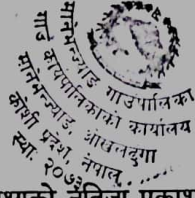 मानेभञ्ज्याङ गाउँपालिका
गाउँ कार्यपालिकाको कार्यालय
मानेभञ्ज्याङ, ओखलढुंगा
कोशी प्रदेश, नेपाल
स्था. २०७३